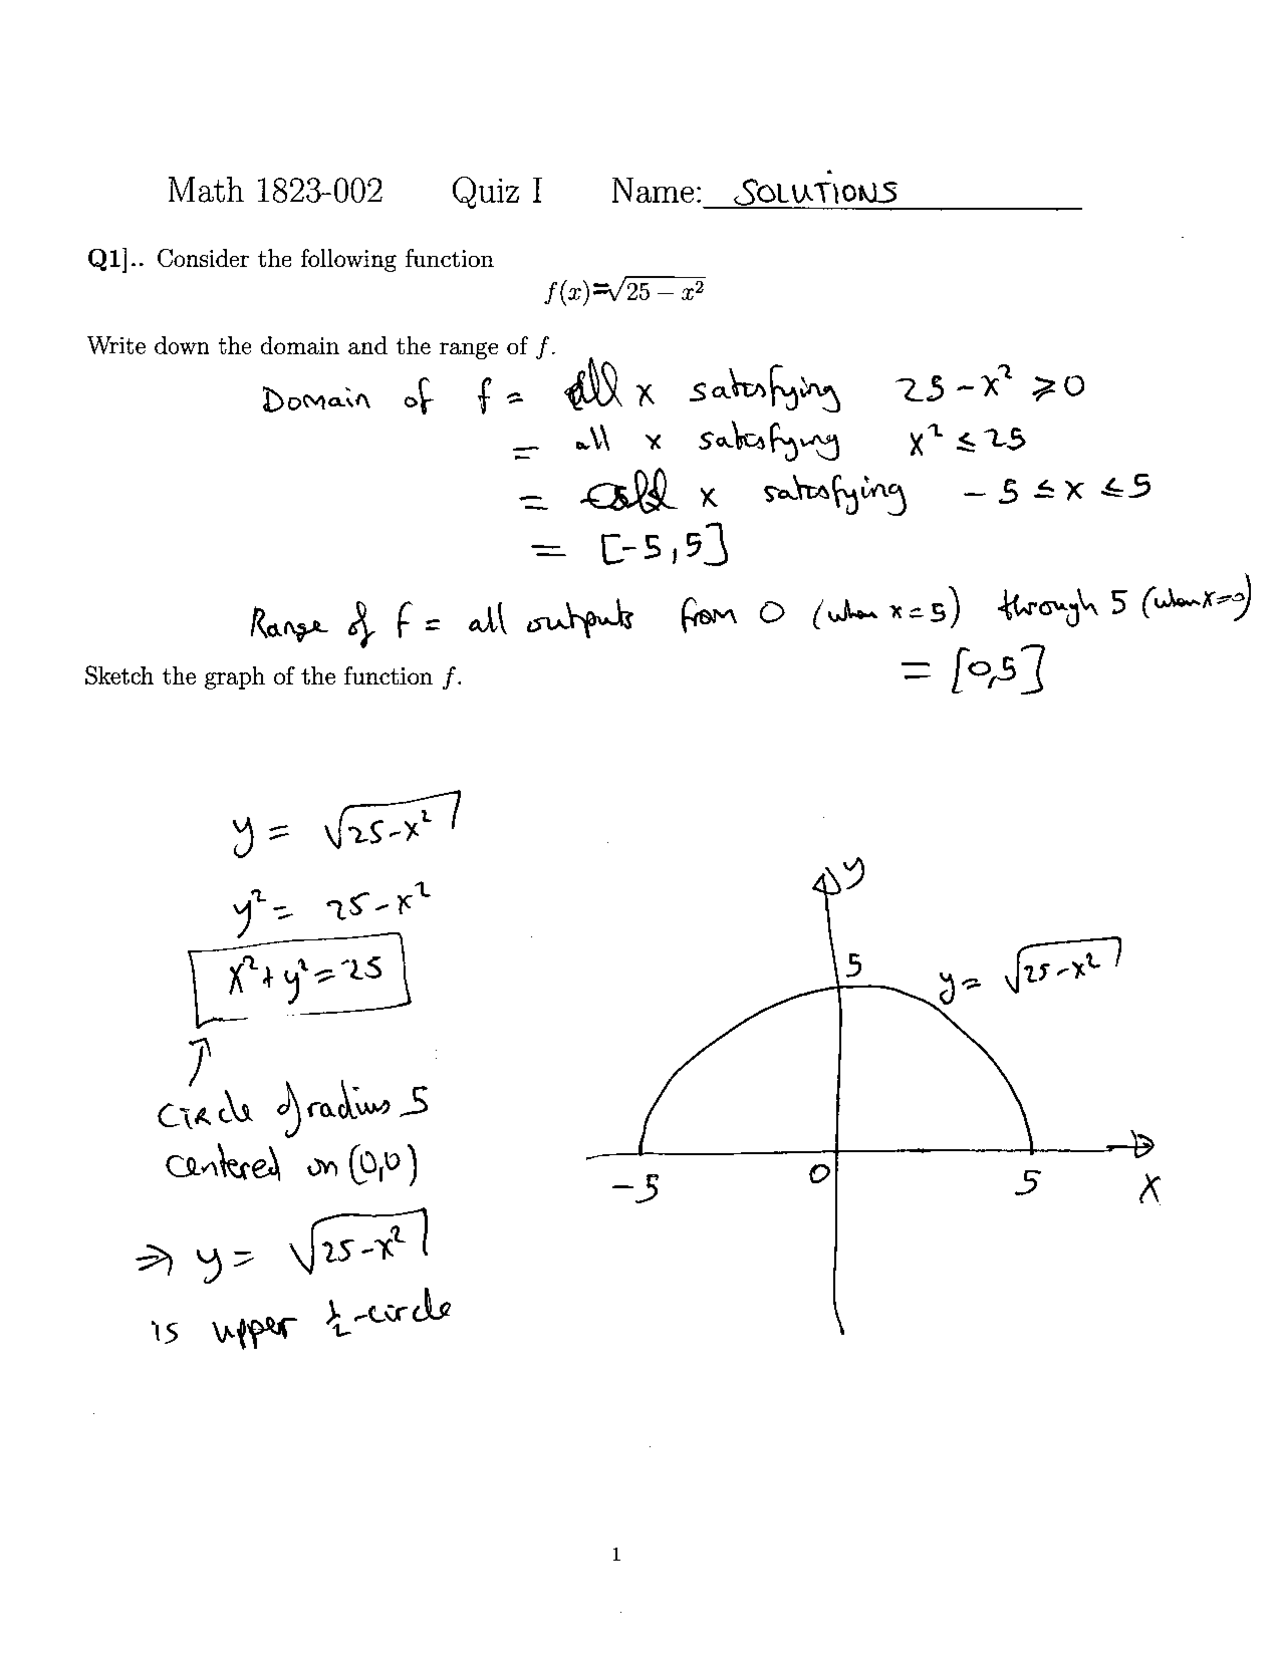 Math 1823-002 Quiz I Name: SOLUTIONS
Q1].. Consider the following function
f(x)=√25 − x²
Write down the domain and the range of f.
Domain of f = all x satisfying 25-x² ≥0
= all x satisfying x² ≤ 25
= all x satisfying -5 ≤ x ≤ 5
= [-5,5]
Range of f = all outputs from 0 (when x=5) through 5 (when x=0)
= [0,5]
Sketch the graph of the function f.
y = √25-x²
y² = 25-x²
x²+y²=25
Circle of radius 5
centered on (0,0)
⇒ y = √25-x²
is upper ½-circle
y
5
y = √25-x²
-5 0 5 x
1